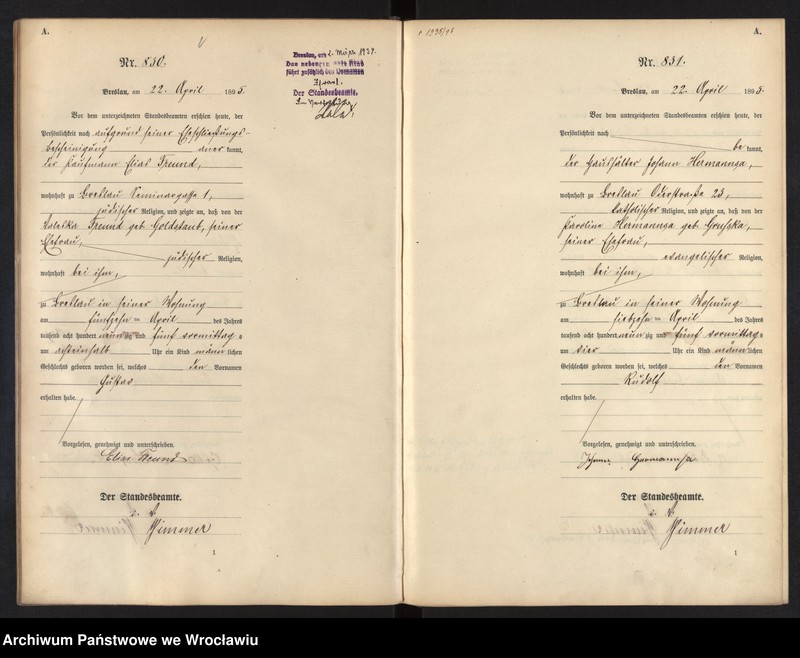 A.
Nr. 830.
Breslau, am 22. April 1895.
Vor dem unterzeichneten Standesbeamten erschien heute, der
Persönlichkeit nach aufgrund seiner Eheschließungs-
bescheinigung anerkannt,
der Kaufmann Elias Freund,
wohnhaft zu Breslau Seminargasse 1,
jüdischer Religion, und zeigte an, daß von der
Valeska Freund geb Goldstaub, seiner
Ehefrau,
jüdischer Religion,
wohnhaft bei ihm,
zu Breslau in seiner Wohnung
am fünfzehn ten April des Jahres
tausend acht hundert neunzig und fünf vormittags
um achteinhalb Uhr ein Kind männlichen
Geschlechts geboren worden sei, welches den Vornamen
Gustav
erhalten habe.
Vorgelesen, genehmigt und unterschrieben.
Elias Freund
Der Standesbeamte.
i. V.
Zimmer
1
Breslau, am 2. März 1939.
Das nebengenannte Kind
führt zusätzlich den Vornamen
Israel.
Der Standesbeamte.
In Vertretung
A.
Nr. 831.
Breslau, am 22. April 1895.
Vor dem unterzeichneten Standesbeamten erschien heute, der
Persönlichkeit nach
bekannt,
der Haushälter Johann Hermannsa,
wohnhaft zu Breslau Oderstraße 23,
katholischer Religion, und zeigte an, daß von der
Karoline Hermannsa geb
seiner Ehefrau,
evangelischer Religion,
wohnhaft bei ihm,
zu Breslau in seiner Wohnung
am siebzehn ten April des Jahres
tausend acht hundert neunzig und fünf vormittags
um vier Uhr ein Kind männlichen
Geschlechts geboren worden sei, welches den Vornamen
Rudolf
erhalten habe.
Vorgelesen, genehmigt und unterschrieben.
Johann Hermannsa
Der Standesbeamte.
i. V.
Zimmer
1
Archiwum Państwowe we Wrocławiu